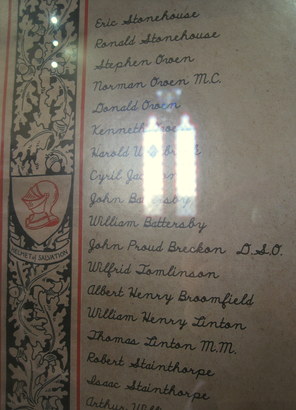 Eric Stonehouse
Ronald Stonehouse
Stephen Owen
Norman Owen M.C.
Donald Owen
Kenneth
Harold
Cyril
John Battersby
William Battersby
HELMET of SALVATION
John Proud Breckon D.S.O.
Wilfrid Tomlinson
Albert Henry Broomfield
William Henry Linton
Thomas Linton M.M.
Robert Stainthorpe
Isaac Stainthorpe
Arthur